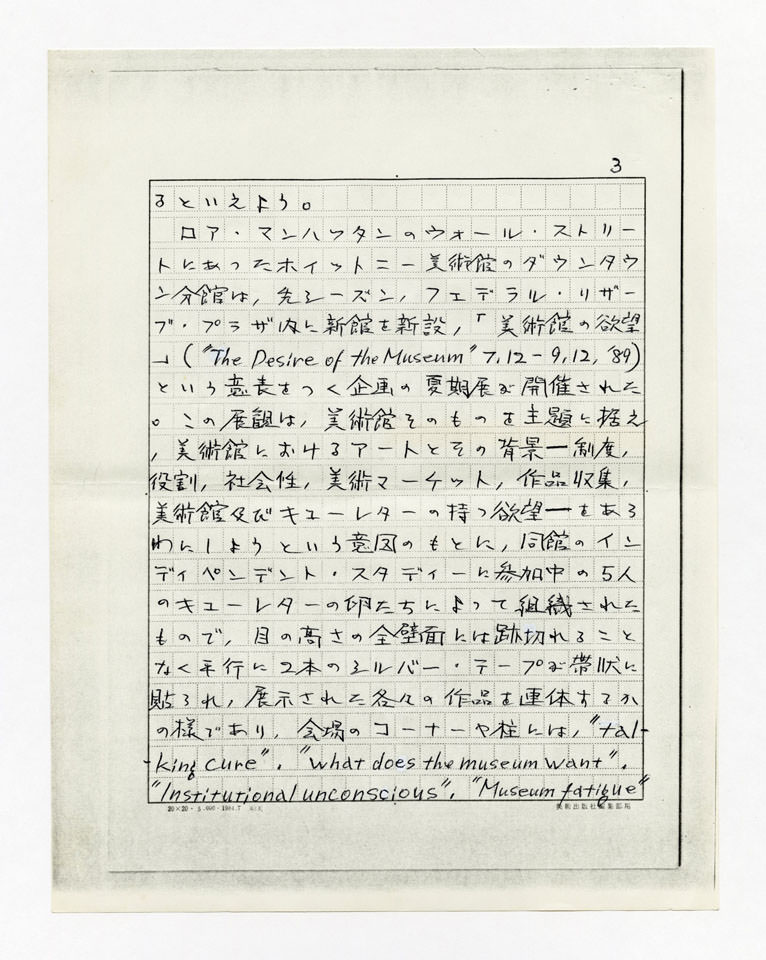 3
るといえよう。
ロア・マンハッタンのウォール・ストリー
トにあったホイットニー美術館のダウンタウ
ン分館は，先シーズン，フェデラル・リザー
ブ・プラザ内に新館を新設，「美術館の欲望
」("The Desire of the Museum" 7,12 - 9,12, '89)
という意表をつく企画の夏期展が開催された
。この展観は，美術館そのものを主題に据え
，美術館におけるアートとその背景ー制度，
役割，社会性，美術マーケット，作品収集，
美術館及びキューレターの持つ欲望ーをあら
わにしようという意図のもとに，同館のイン
ディペンデント・スタディーに参加中の5人
のキューレターの卵たちによって組織された
もので，目の高さの全壁面には跡切れること
なく平行に2本のシルバー・テープが帯状に
貼られ，展示された各々の作品を連体するか
の様であり，会場のコーナーや柱には，"tal-
-king cure". "what does the museum want".
"Institutional unconscious". "Museum fatigue"
20×20・5,000・1984.7
美術出版社編集部用